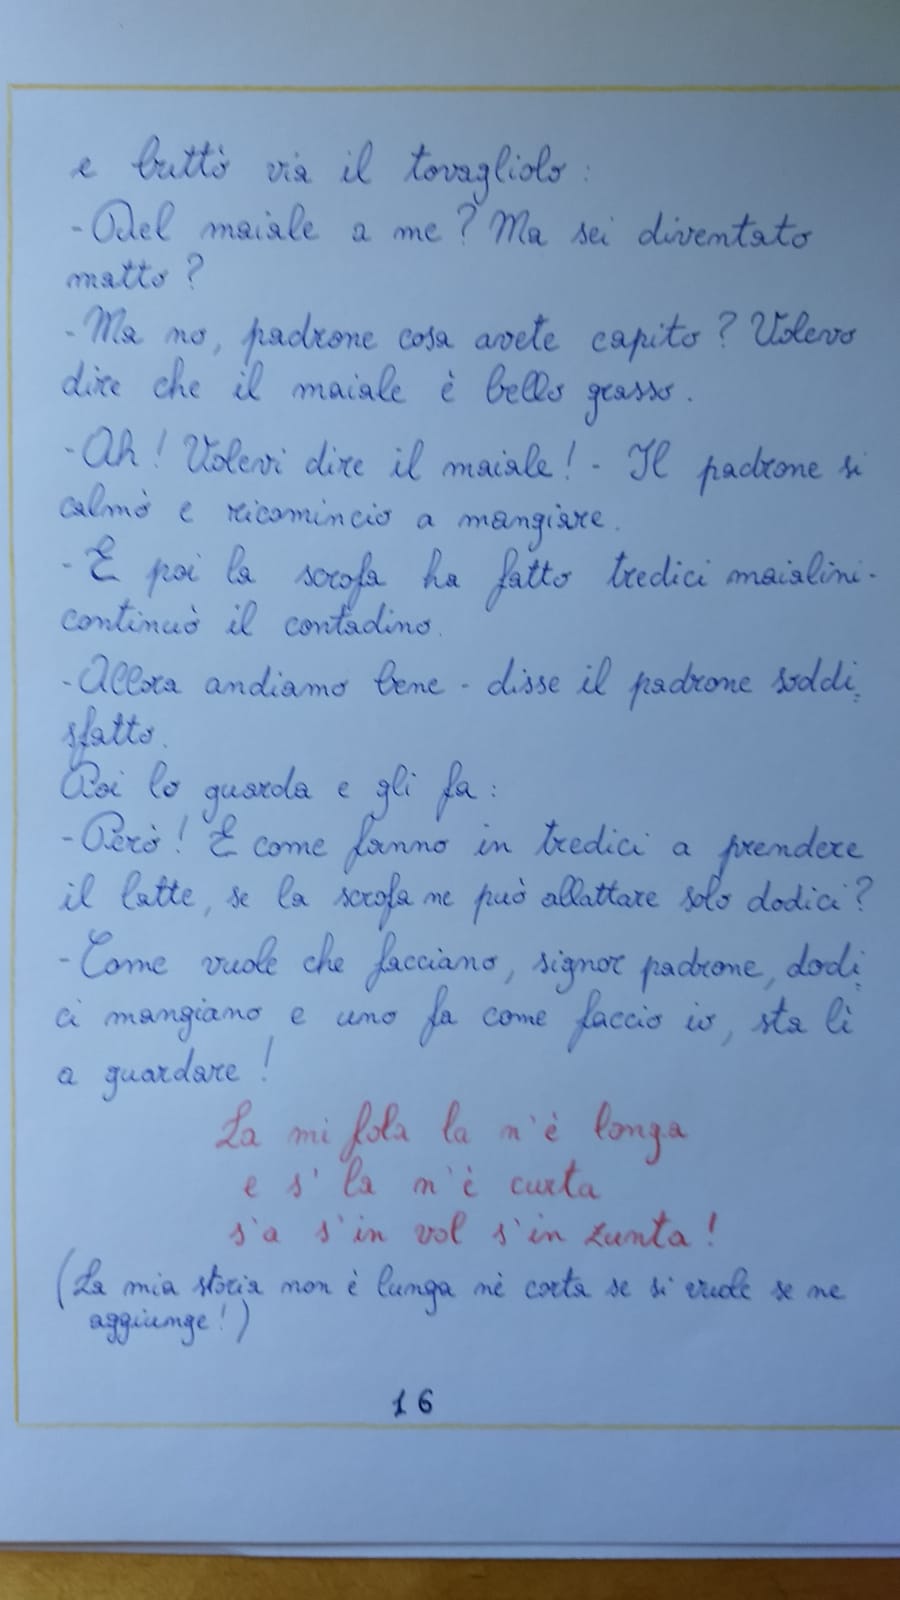 e buttò via il tovagliolo:
- Del maiale a me? Ma sei diventato
matto?
- Ma no, padrone cosa avete capito? Volevo
dire che il maiale è bello grasso.
- Ah! Volevi dire il maiale! - Il padrone si
calmò e ricominciò a mangiare.
- E poi la scrofa ha fatto tredici maialini -
continuò il contadino.
- Allora andiamo bene - disse il padrone soddi=
sfatto.
Poi lo guarda e gli fa:
- Però! E come fanno in tredici a prendere
il latte, se la scrofa ne può allattare solo dodici?
- Come vuole che facciano, signor padrone, dodi=
ci mangiano e uno fa come faccio io, sta lì
a guardare!
La mi fola la n'è longa
e s' la n'è curta
s'a s'in vol s'in zunta!
(La mia storia non è lunga nè corta se si vuole se ne
aggiunge!)
16